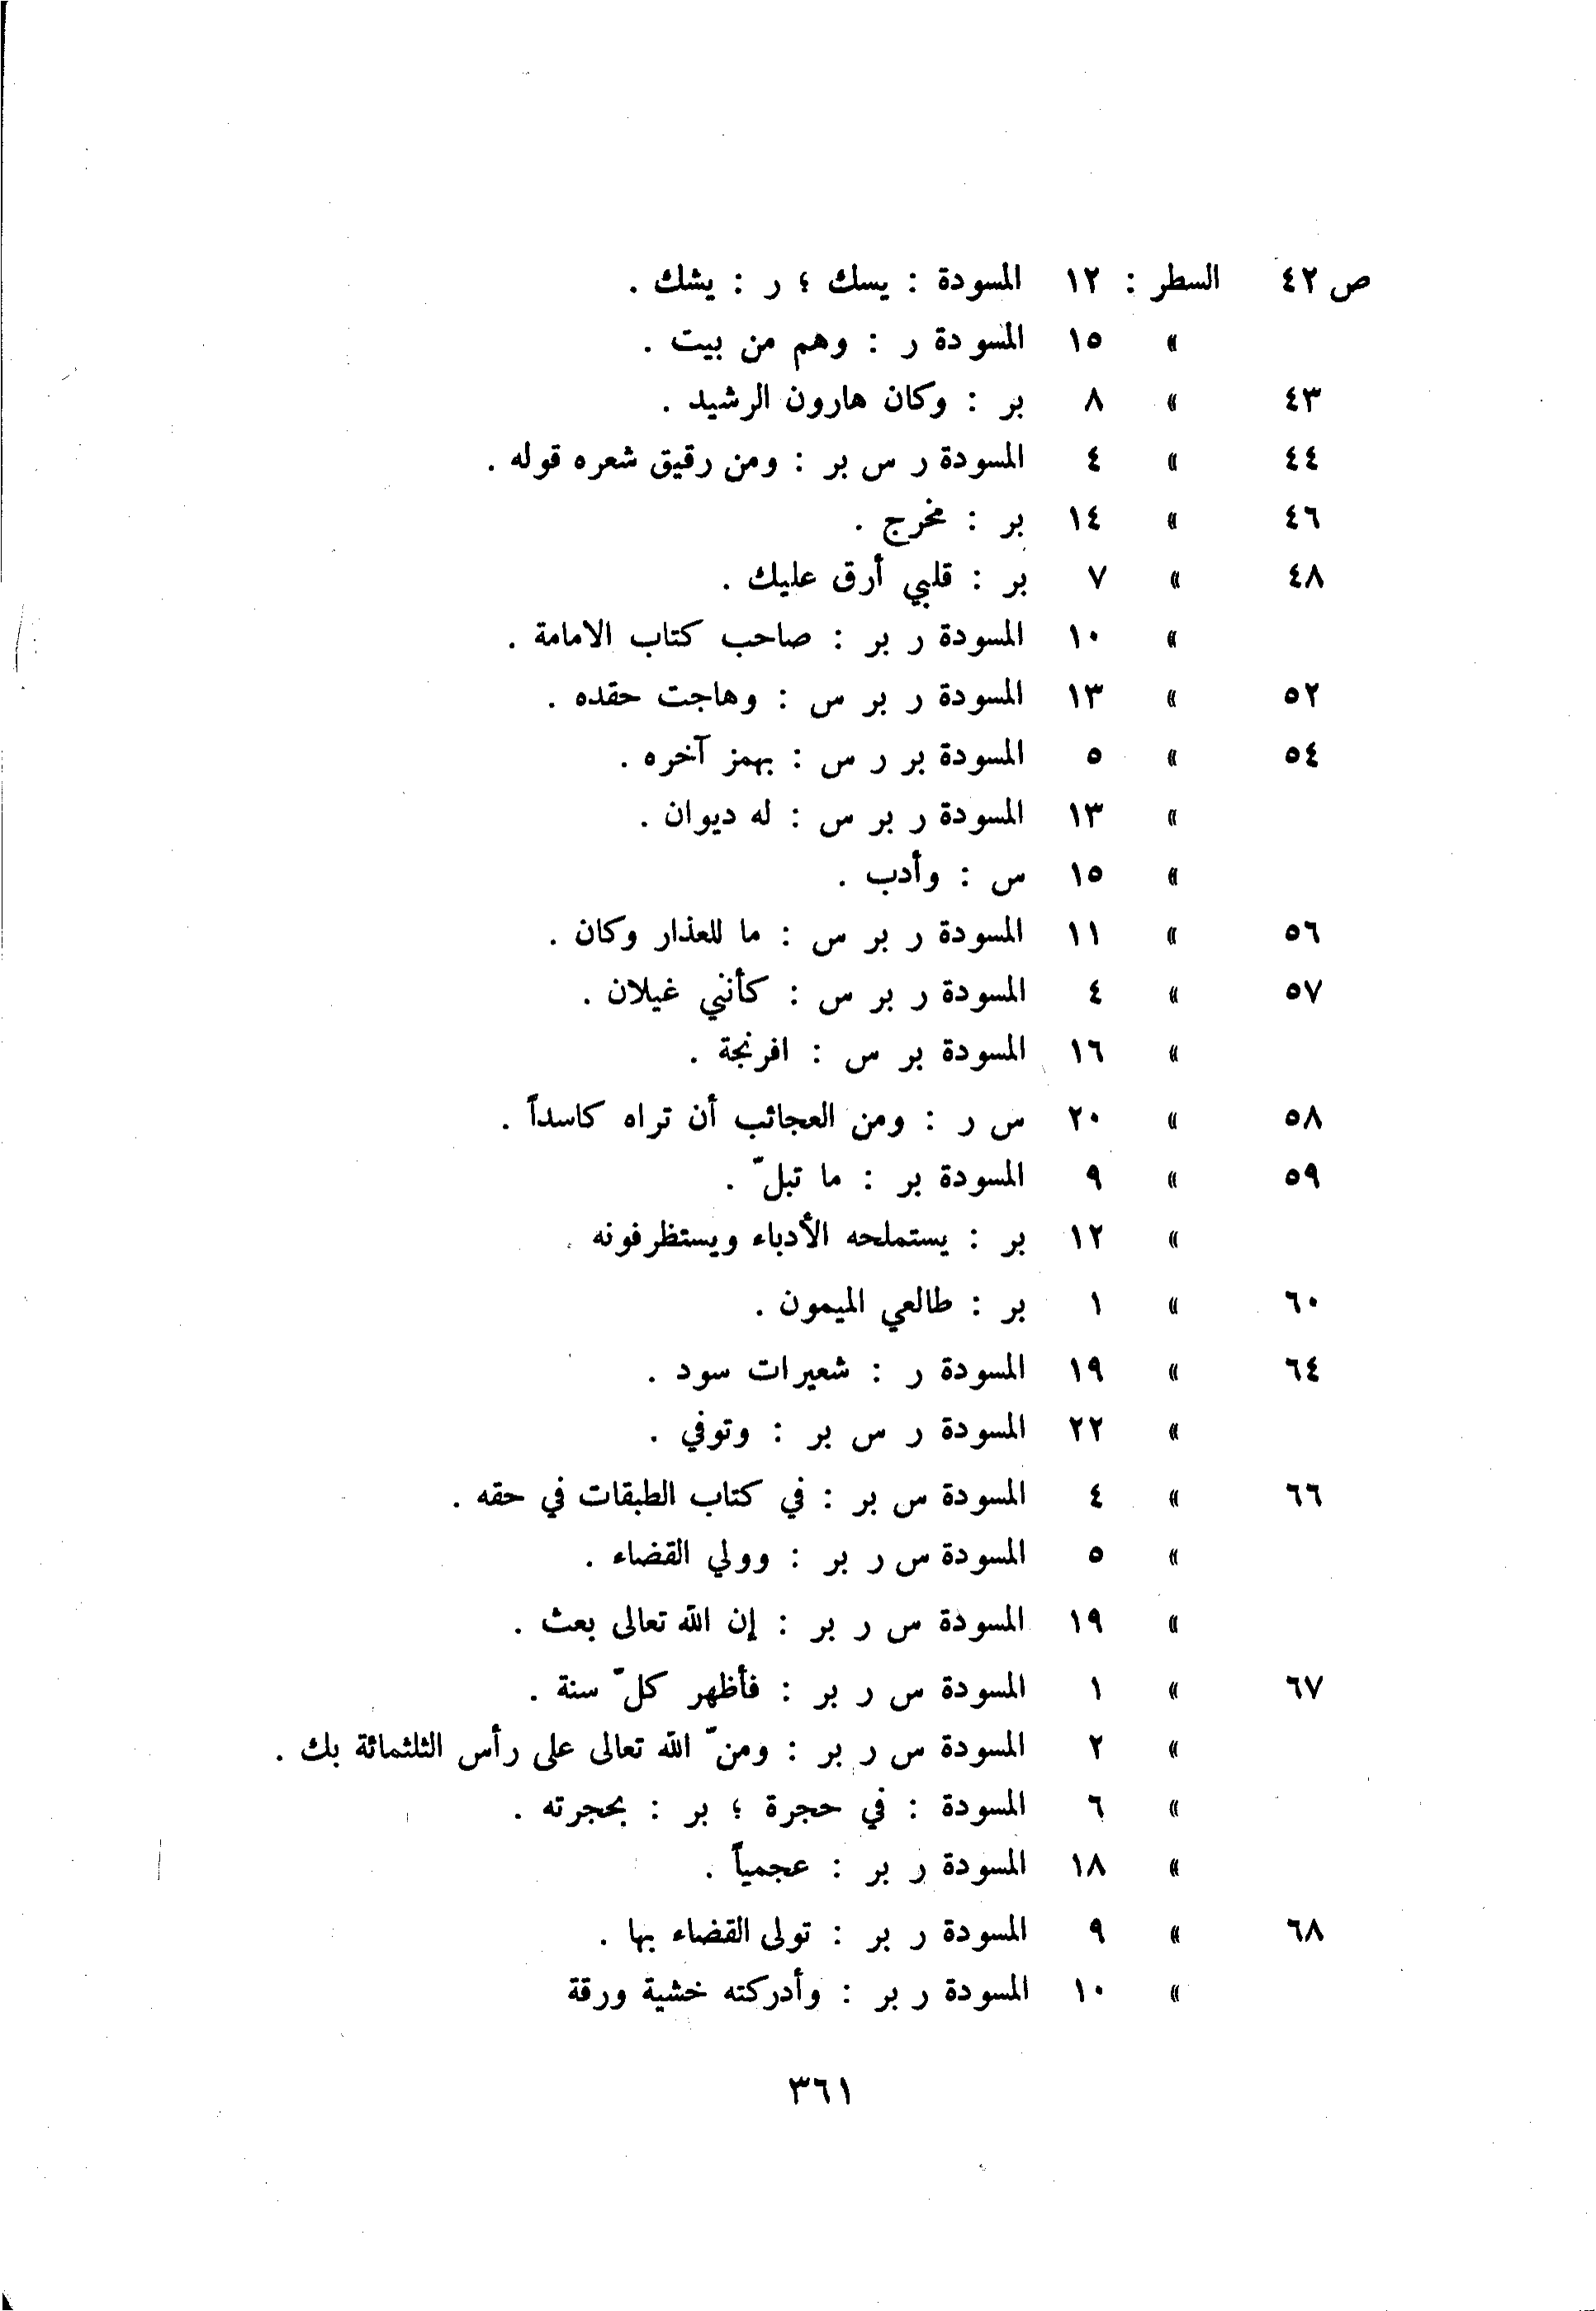 ص ٤٢ السطر : ١٢ المسودة : يسك ؛ ر : يشك .
» ١٥ المسودة ر : وهم من بيت .
٤٣ » ٨ بر : وكان هارون الرشيد .
٤٤ » ٤ المسودة ر س بر : ومن رقيق شعره قوله .
٤٦ » ١٤ بر : مخرج .
٤٨ » ٧ بر : قلبي أرق عليك .
» ١٠ المسودة ر بر : صاحب كتاب الامامة .
٥٢ » ١٣ المسودة ر بر س : وهاجت حقده .
٥٤ » ٥ المسودة بر ر س : بهمز آخره .
» ١٣ المسودة ر بر س : له ديوان .
» ١٥ س : وأدب .
٥٦ » ١١ المسودة ر بر س : ما للعذار وكان .
٥٧ » ٤ المسودة ر بر س : كأنني غيلان .
» ١٦ المسودة بر س : افرنجة .
٥٨ » ٢٠ س ر : ومن العجائب أن تراه كاسداً .
٥٩ » ٩ المسودة بر : ما تبلّ .
» ١٢ بر : يستملحه الأدباء ويستظرفونه .
٦٠ » ١ بر : طالعي الميمون .
٦٤ » ١٩ المسودة ر : شعيرات سود .
» ٢٢ المسودة ر س بر : وتوفي .
٦٦ » ٤ المسودة س بر : في كتاب الطبقات في حقه .
» ٥ المسودة س ر بر : وولي القضاء .
» ١٩ المسودة س ر بر : إن الله تعالى بعث .
٦٧ » ١ المسودة س ر بر : فأظهر كلّ سنة .
» ٢ المسودة س ر بر : ومنّ الله تعالى على رأس الثلثمائة بك .
» ٦ المسودة : في حجرة ؛ بر : بحجرته .
» ١٨ المسودة ر بر : عجمياً .
٦٨ » ٩ المسودة ر بر : تولى القضاء بها .
» ١٠ المسودة ر بر : وأدركته خشية ورقة
٣٦١